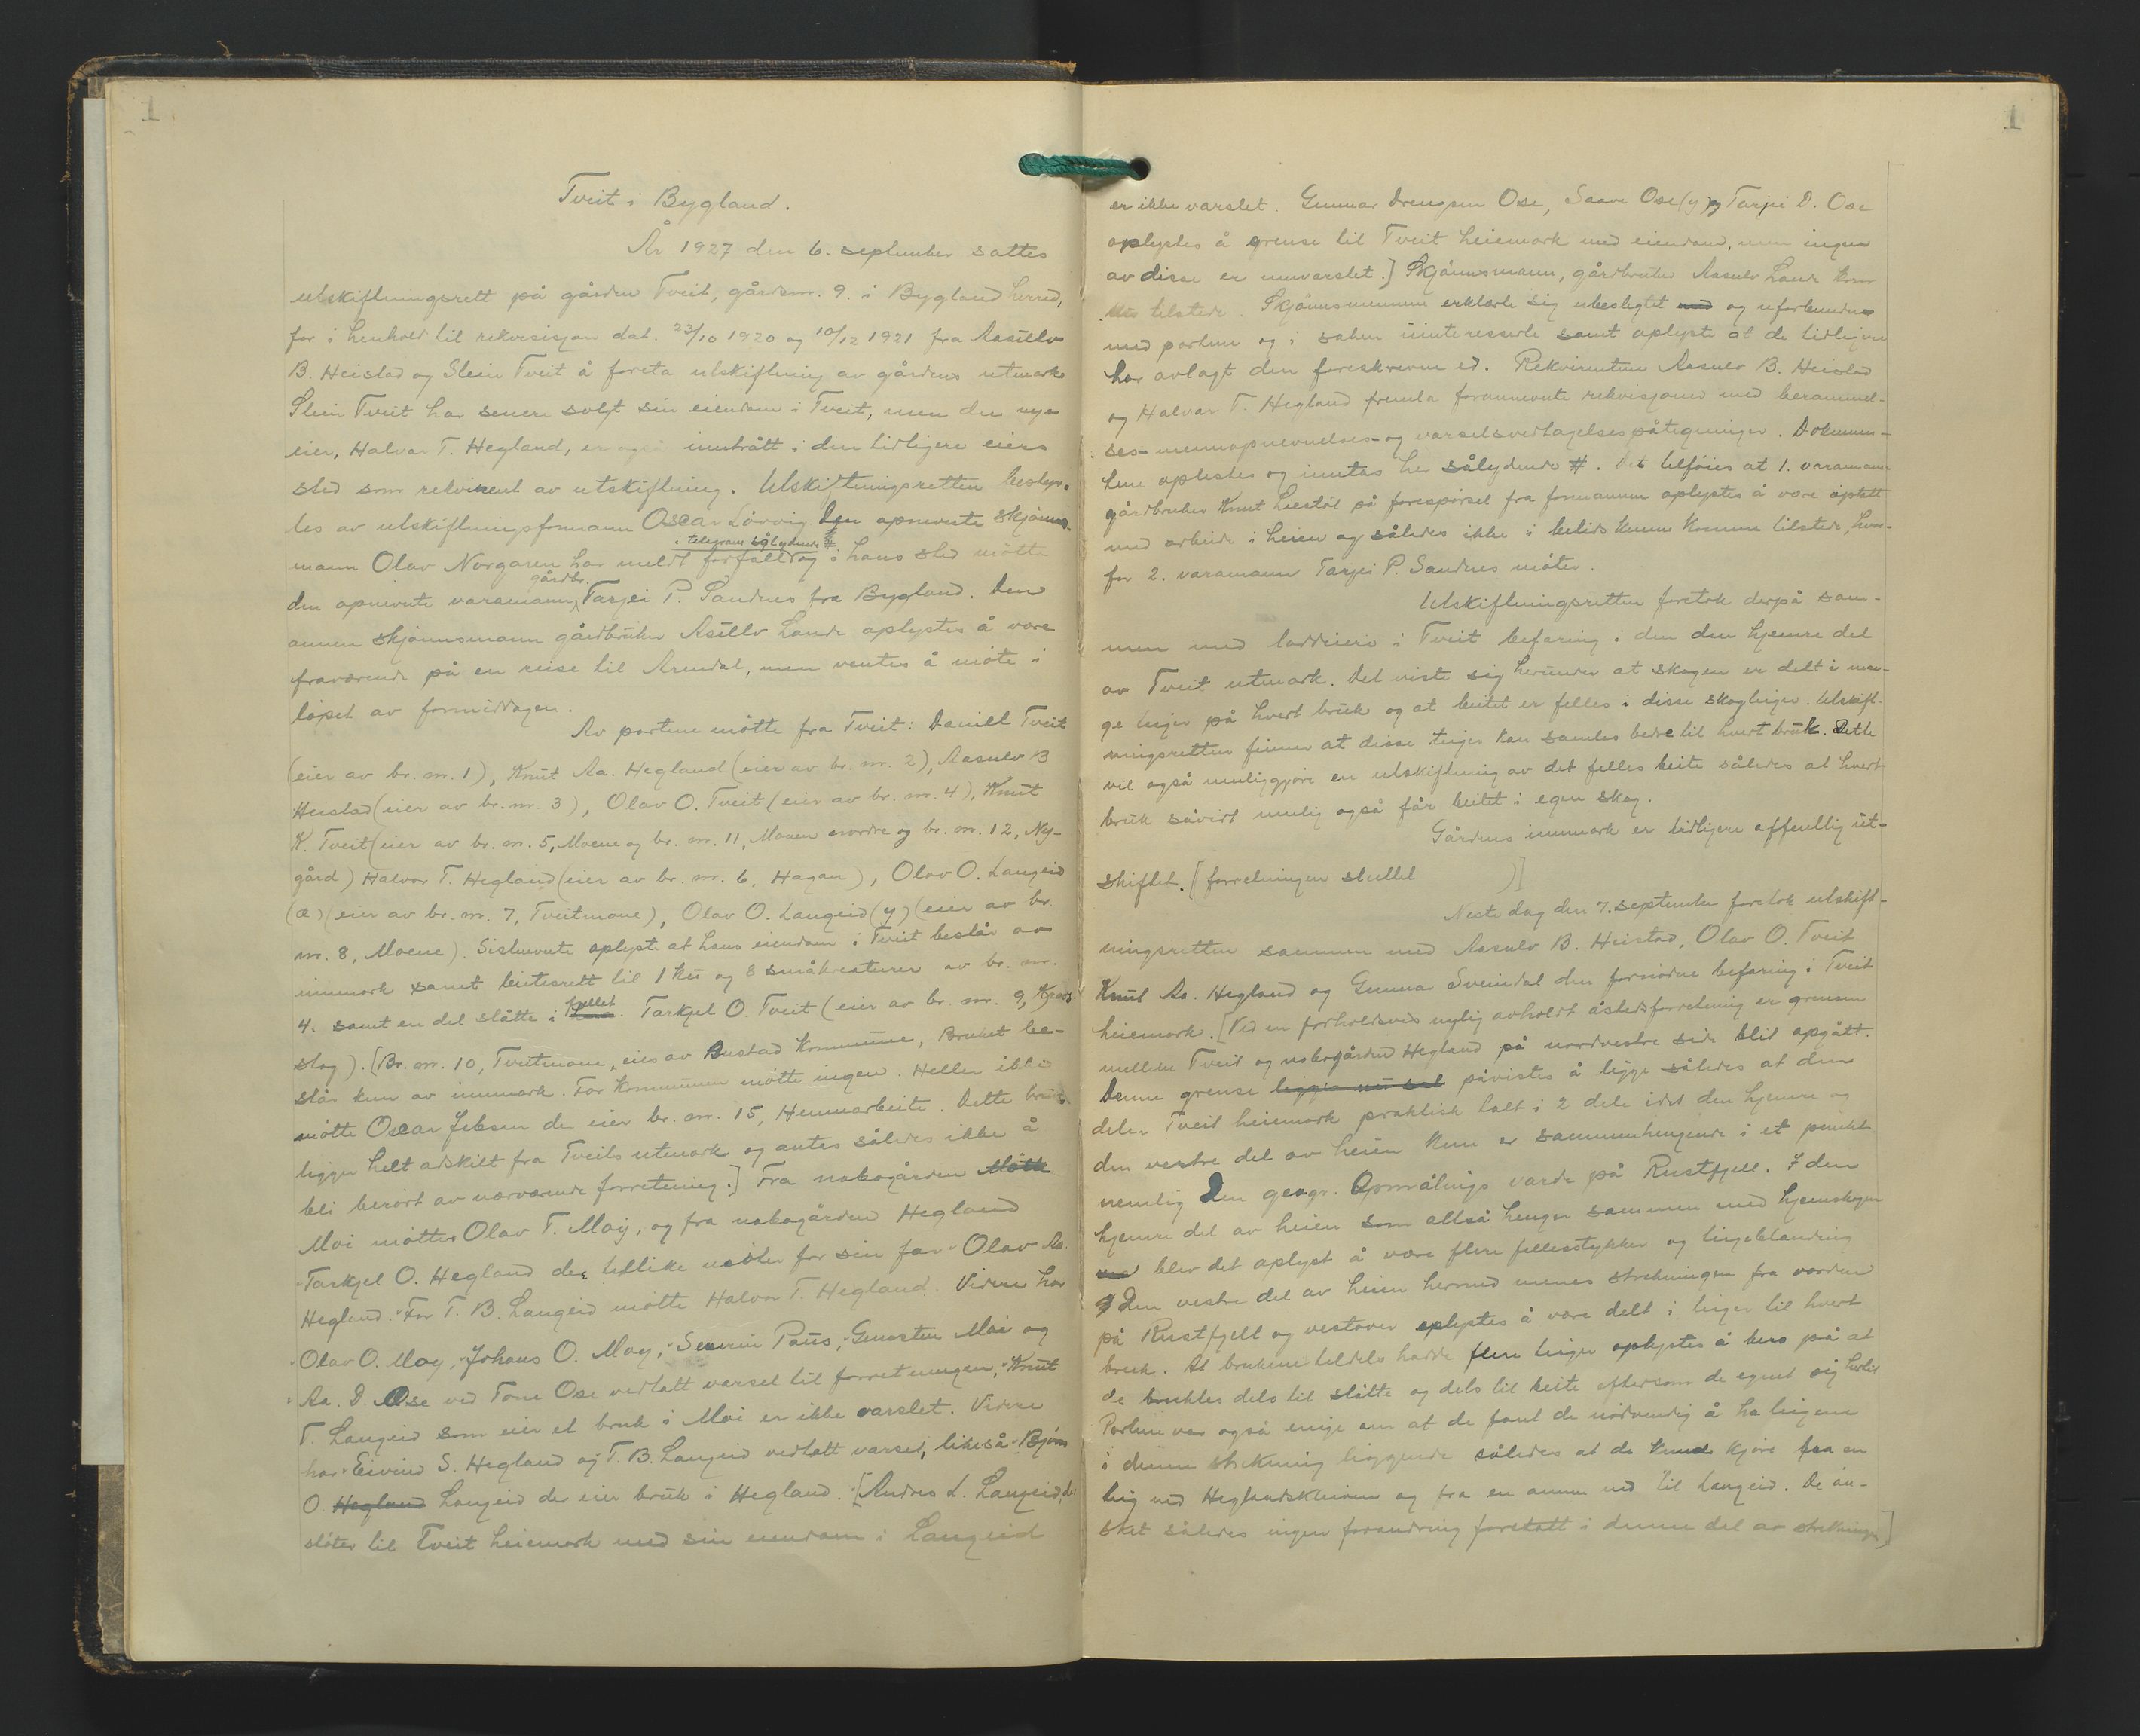 1
Tveit i Bygland.
År 1927 den 6. september sattes
utskiftningsrett på gården Tveit, gårdsnr. 9. i Bygland herred,
for i henhold til rekvisisjon dat. 23/10 1920 og 10/12 1921 fra Aasulv
B. Heistad og Stein Tveit å foreta utskiftning av gårdens utmark.
Stein Tveit har senere solgt sin eiendom i Tveit, men den nye
eier, Halvar T. Hegland, er også inntrått i den tidligere eiers
sted som rekvirent av utskiftning. Utskiftningsretten bestyr-
tes av utskiftningsformann Oscar Lövvig. Den opnevnte skjönns-
i telegram sålydende #
mann Olav Norgaren har meldt forfall og i hans sted mötte
gårdbr.
den opnevnte varamann, Tarjei P. Sandnes fra Bygland. Den
annen skjönnsmann gårdbruker Asullv Lande oplystes å være
fraværende på en reise til Arendal, men ventes å möte i
löpet av formiddagen.
Av partene mötte fra Tveit: Daniell Tveit
(eier av br. nr. 1), Knut Aa. Hegland (eier av br. nr. 2), Aasulv B
Heistad (eier av br. nr. 3), Olav O. Tveit (eier av br. nr. 4), Knut
K. Tveit (eier av br. nr. 5, Moene og br. nr. 11, Monen nordre og br. nr. 12, Ny-
gård) Halvor T. Hegland (eier av br. nr. 6, Hagan), Olav O. Langeid
(æ) (eier av br. nr. 7, Tveitmone), Olav O. Langeid (y) (eier av br.
nr. 8, Moene). Sistnevnte oplyste at hans eiendom i Tveit består av
innmark samt beitesrett til 1 ku og 8 småkreaturer av br. nr.
4. samt en del slåtte i fjellet. Tarkjel O. Tveit (eier av br. nr. 9,
slag). [Br. nr. 10, Tveitmone, eies av Austad kommune, Bruket be-
står kun av innmark. For kommunen mötte ingen. Heller ikke
mötte Oscar Jebsen der eier br. nr. 15, Hennarbeite. Dette bruk
ligger helt adskilt fra Tveits utmark og antas således ikke å
bli berört av nærværende forretning.] Fra nabogården Mötte
Moi möttes Olav T. Moij, og fra nabogården Hegland
Tarkjel O. Hegland der tillike möter for sin far Olav Aa.
Hegland. For T. B. Langeid mötte Halvor T. Hegland. Videre har
Olav O. Moy, Johans O. Moy, Severin Paus, Moi og
Aa. D. Ose ved Tone Ose vedtatt varsel til forretningen, Knut
T. Langeid som eier et bruk i Moi er ikke varslet. Videre
har Eivind S. Hegland og T. B. Langeid vedtatt varsel, likeså Björn
O. Hegland Langeid der eier bruk i Hegland. [Andres L. Langeid, der
stöter til Tveit heiemark med sin eiendom i Langeid
1
er ikke varslet. Gunnar Drengsen Ose, Saave Ose (y) og Tarjei D. Ose
oplystes å grense til Tveit heiemark med eiendom, men ingen
av disse er varslet.] Skjönnsmann, gårdbruker Aasulv Lande kom
nu tilstede. Skjönnsmennene erklærte sig ubeslegtet med og uforbundne
med partene og i saken uinteressert samt oplyste at de tidligere
har avlagt den foreskrevne ed. Rekvirentene Aasulv B. Heistad
og Halvar T. Hegland fremla forannevnte rekvisisjoner med berammel-
ses- mennopnevnelses- og varselsvedtagelsespåtegninger. Dokumen-
tene oplestes og inntas her sålydende #. Det tilföies at 1. varamann
gårdbruker Knut Liestöl på forespörsel fra formannen oplystes å være optatt
med arbeide i heien og således ikke i betids kunne komme tilstede, hvor-
for 2. varamann Tarjei P. Sandnes möter.
Utskiftningsretten foretok derpå sam-
men med loddeiere i Tveit befaring i den den hjemre del
av Tveit utmark. Det viste sig herunder at skogen er delt i man-
ge teiger på hvert bruk og at beitet er felles i disse skogteiger. Utskift-
ningsretten finner at disse teiger kan samles bedre til hvert bruk. Dette
vil også muliggjöre en utskiftning av det felles beite således at hvert
bruk såvidt mulig også får beitet i egen skog.
Gårdens innmark er tidligere offentlig ut-
skiftet. [forretningen sluttet )]
Neste dag den 7. september foretok utskift-
ningsretten sammen med Aasulv B. Heistad, Olav O. Tveit
Knut Aa. Hegland og Gunnar Sveindal den fornödne befaring i Tveit
heiemark. [Ved en forholdsvis nylig avholdt åstedsforretning er grensen
mellem Tveit og nabogården Hegland på nordvestre side blit opgått.
Denne grense ligger nu sal påvistes å ligge således at den
deler Tveit heiemark praktisk talt i 2 dele idet den hjemre og
den vestre del av heien kun er sammenhengende i et punkt
nemlig Den geogr. Opmålings varde på Rustfjell. I den
hjemre del av heien som altså henger sammen med hjemskogen
blev det oplyst å være flere fellesstykker og teigeblanding
I den vestre del av heien hermed menes strekningen fra varden
på Rustfjell og vestover oplystes å være delt i teiger til hvert
bruk. At brukene tildels hadde flere teiger oplystes å bero på at
de bruktes dels til slåtte og dels til beite eftersom de egnet sig hertil
Partene var også enige om at de fant de nödvendig å ha teigene
i denne strekning liggende således at de kunde kjöre fra en
teig ned Heglandskleiven og fra en annen ned til Langeid. De ön-
sket således ingen forandring foretatt i denne del av strekningen]